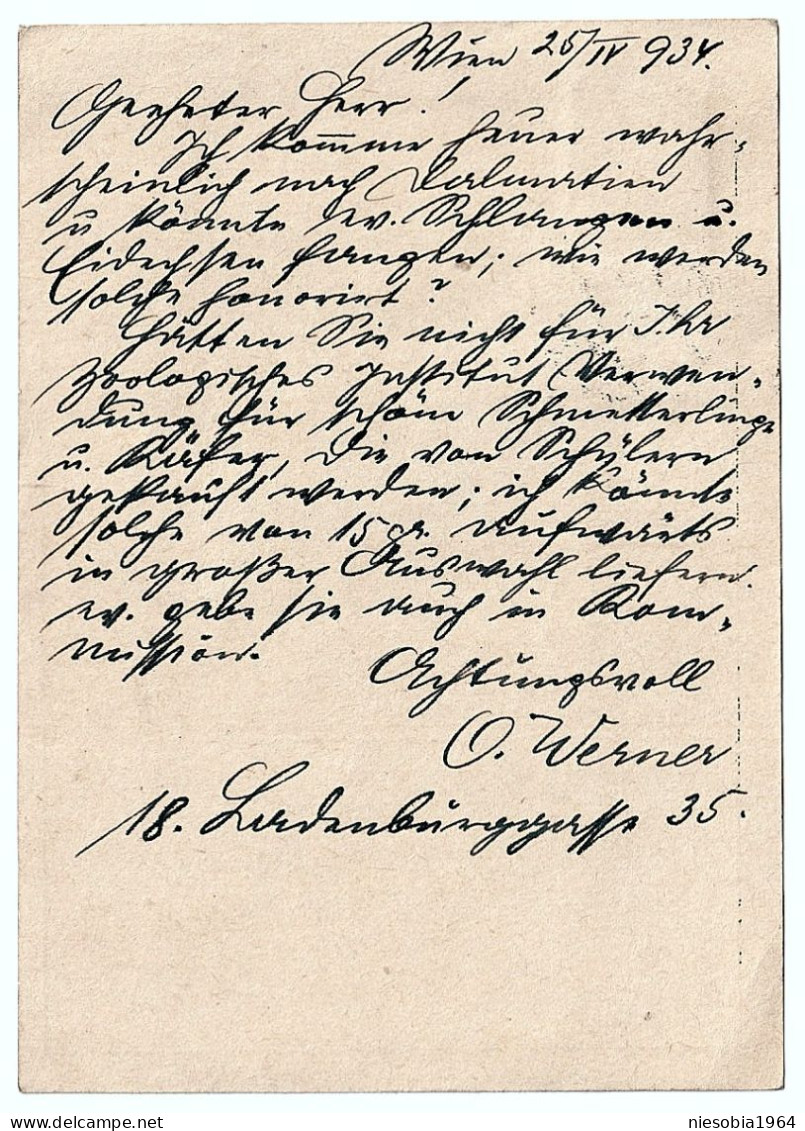 Wien 25/IV 934.
Geehrter Herr!
Ich komme heuer wahr-
scheinlich nach Dalmatien
u könnte ev. Schlangen u.
Eidechsen fangen; wie werden
solche honoriert?
Hätten Sie nicht für Ihr
Zoologisches Institut Verwen-
dung für schöne Schmetterlinge
u. Käfer, die von Schülern
gekauft werden; ich könnte
solche von 15 gr. aufwärts
in großer Auswahl liefern.
ev. gebe sie auch in Kom-
mission.
Achtungsvoll
O. Werner
18. Ladenburggasse 35.
niesobia1964